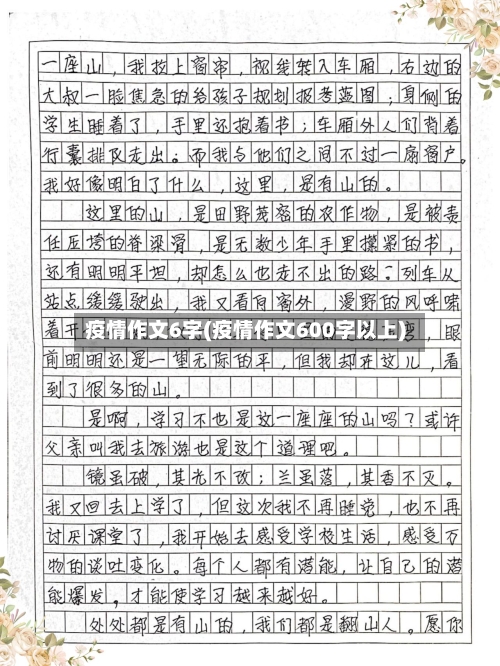 一座山，我拉上窗帘，视线转入车厢，右边的
大叔一脸焦急的给孩子规划报考蓝图；身侧的
学生睡着了，手里还抱着书；车厢外人们背着
行囊排队走出。而我与他们之间不过一扇窗户。
我好像明白了什么，这里，是有山的。
这里的山，是田野茂密的农作物，是被责
任压垮的脊梁骨，是无数少年手里攥紧的书，
还有明明平坦，却怎么也走不出的路。列车从
站点缓缓驶出，我又看向窗外，漫野的风呼啸
着开
疫情作文6字(疫情作文600字以上)
眼
前明明还是一望无际的平，但我却在这儿，看
到了很多的山。
是啊，学习不也是这一座座的山吗？或许
父亲叫我去旅游也是这个道理吧。
镜虽破，其光不改；兰虽落，其香不灭。
我又回去上学了，但这次我不再睡觉，也不再
讨厌课堂了，我开始去感受学校生活，感受万
物的谈吐变化。每个人都有潜能，让自己的潜
能爆发，才能使学习越来越好。
处处都是有山的，我们都是翻山人。愿你